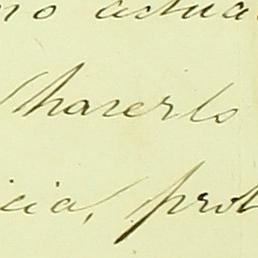 no actua
hacerlo
icia, prot